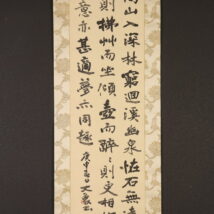 山入深林窮迴溪幽泉怪石無遠
則草而坐傾壺而醉醉則更相
意亦甚適夢亦同趣
庚申日大書